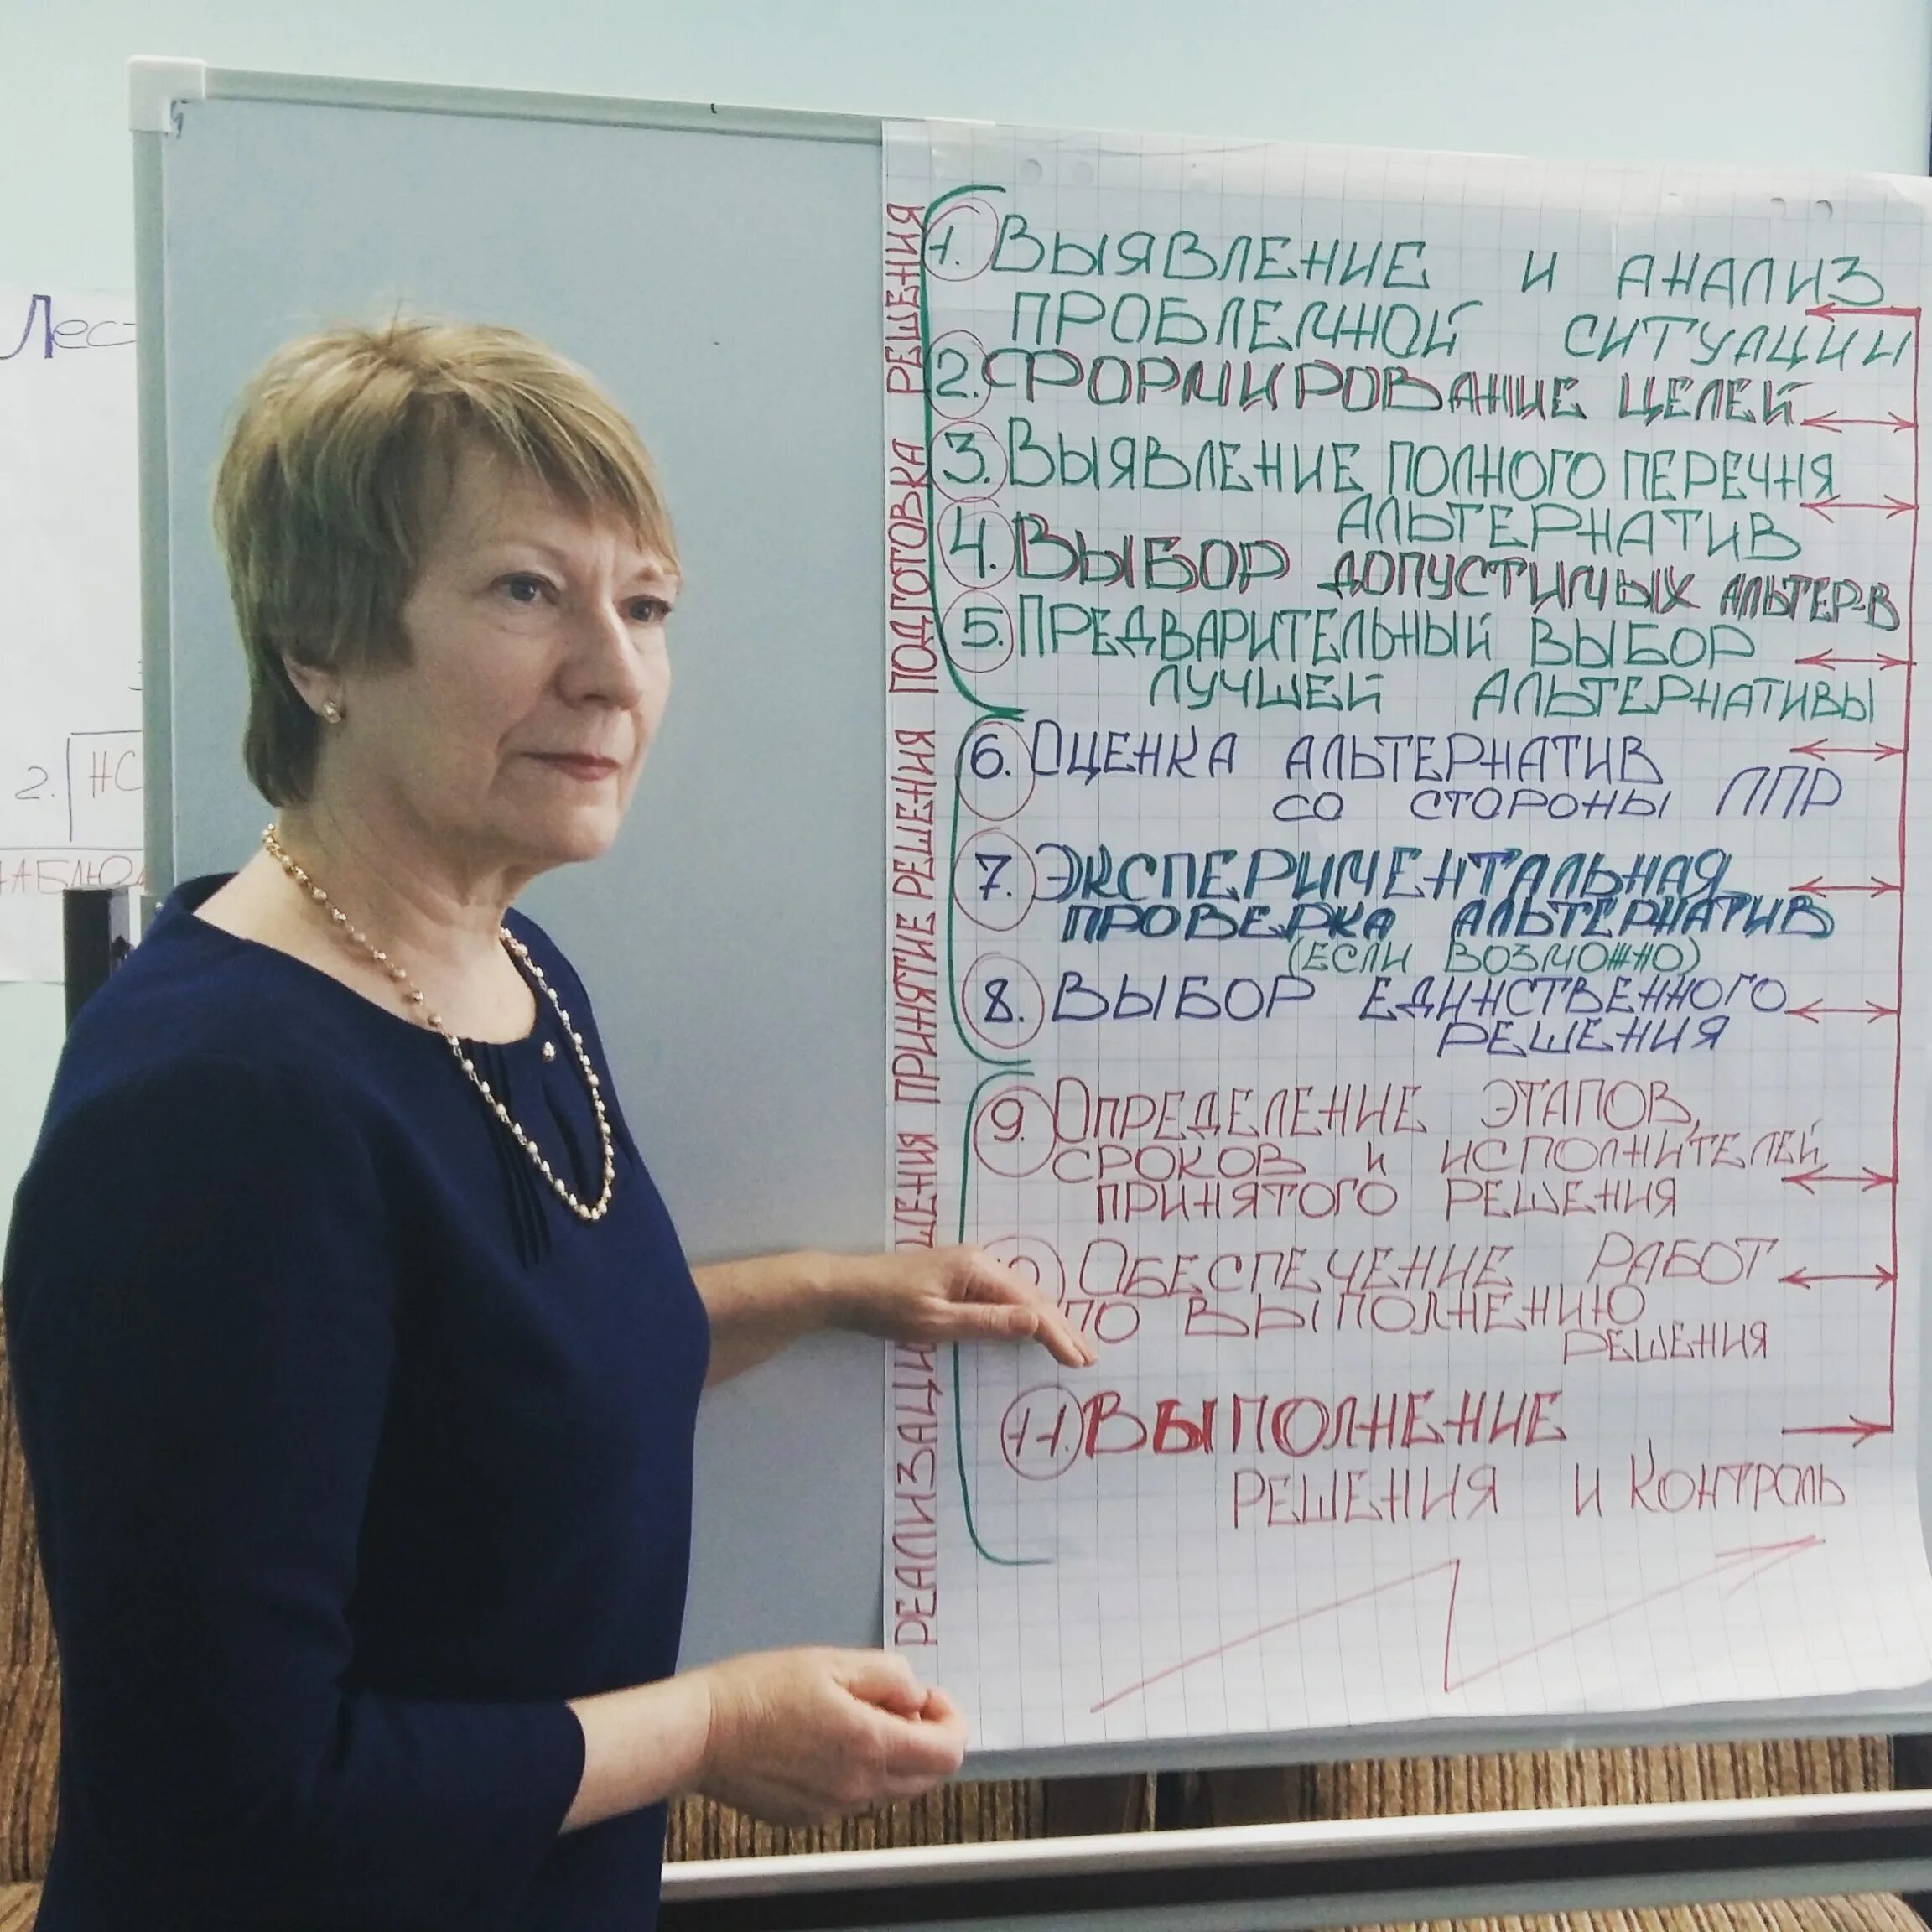 Лес
2. НС
НАБЛЮД
ПОДГОТОВКА РЕШЕНИЯ
1. ВЫЯВЛЕНИЕ И АНАЛИЗ
ПРОБЛЕМНОЙ СИТУАЦИИ
2. ФОРМИРОВАНИЕ ЦЕЛЕЙ
3. ВЫЯВЛЕНИЕ ПОЛНОГО ПЕРЕЧНЯ
АЛЬТЕРНАТИВ
4. ВЫБОР ДОПУСТИМЫХ АЛЬТЕР-В
5. ПРЕДВАРИТЕЛЬНЫЙ ВЫБОР
ЛУЧШЕЙ АЛЬТЕРНАТИВЫ
ПРИНЯТИЕ РЕШЕНИЯ
6. ОЦЕНКА АЛЬТЕРНАТИВ
СО СТОРОНЫ ЛПР
7. ЭКСПЕРИМЕНТАЛЬНАЯ
ПРОВЕРКА АЛЬТЕРНАТИВ
(ЕСЛИ ВОЗМОЖНО)
8. ВЫБОР ЕДИНСТВЕННОГО
РЕШЕНИЯ
РЕАЛИЗАЦИ ШЕНИЯ
9. ОПРЕДЕЛЕНИЕ ЭТАПОВ,
СРОКОВ И ИСПОЛНИТЕЛЕЙ
ПРИНЯТОГО РЕШЕНИЯ
ОБЕСПЕЧЕНИЕ РАБОТ
ПО ВЫПОЛНЕНИЮ
РЕШЕНИЯ
11. ВЫПОЛНЕНИЕ
РЕШЕНИЯ И КОНТРОЛЬ